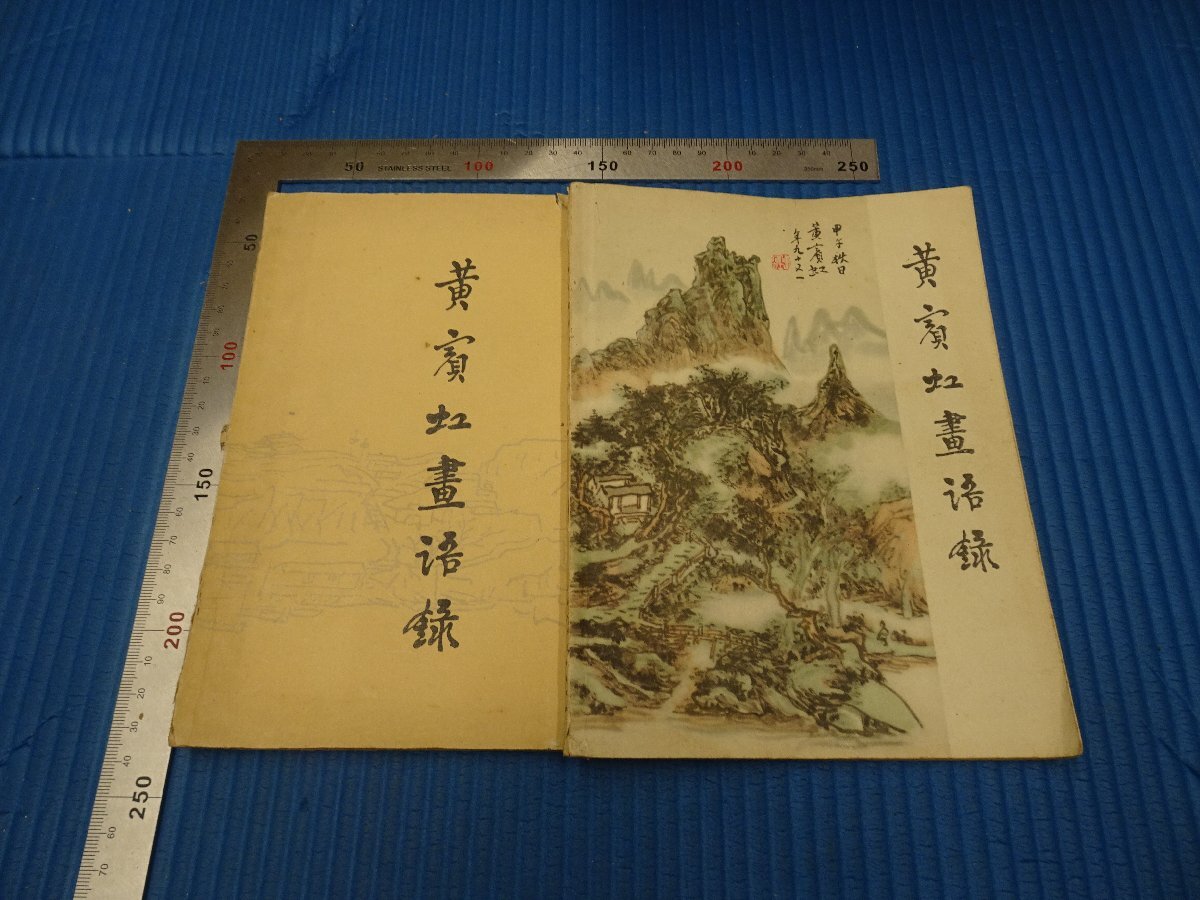 黄賓虹畫語録
黄賓虹畫語録
甲午秋日
黄賓虹
年九十又一
50 STAINLESS STEEL 100 150 200 250
50
100
150
200
250